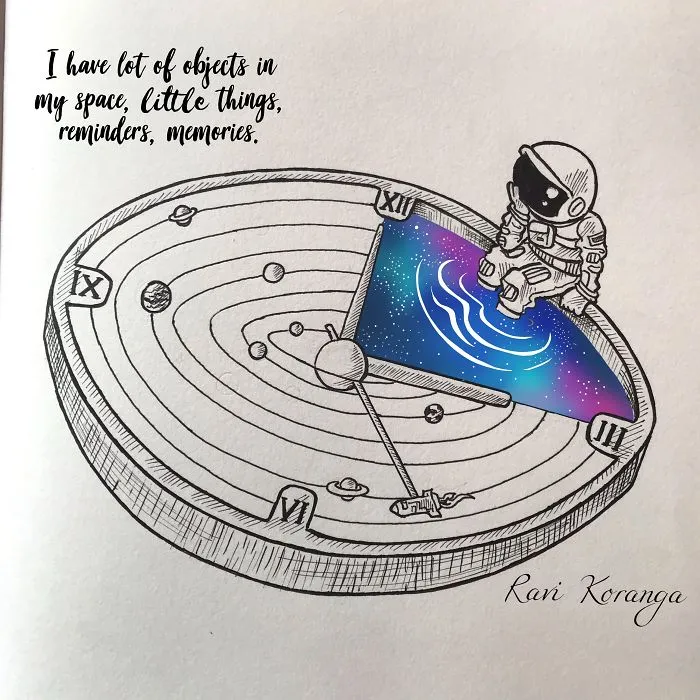 I have lot of objects in
my space, little things,
reminders, memories.
XII
IX
III
VI
Ravi Koranga